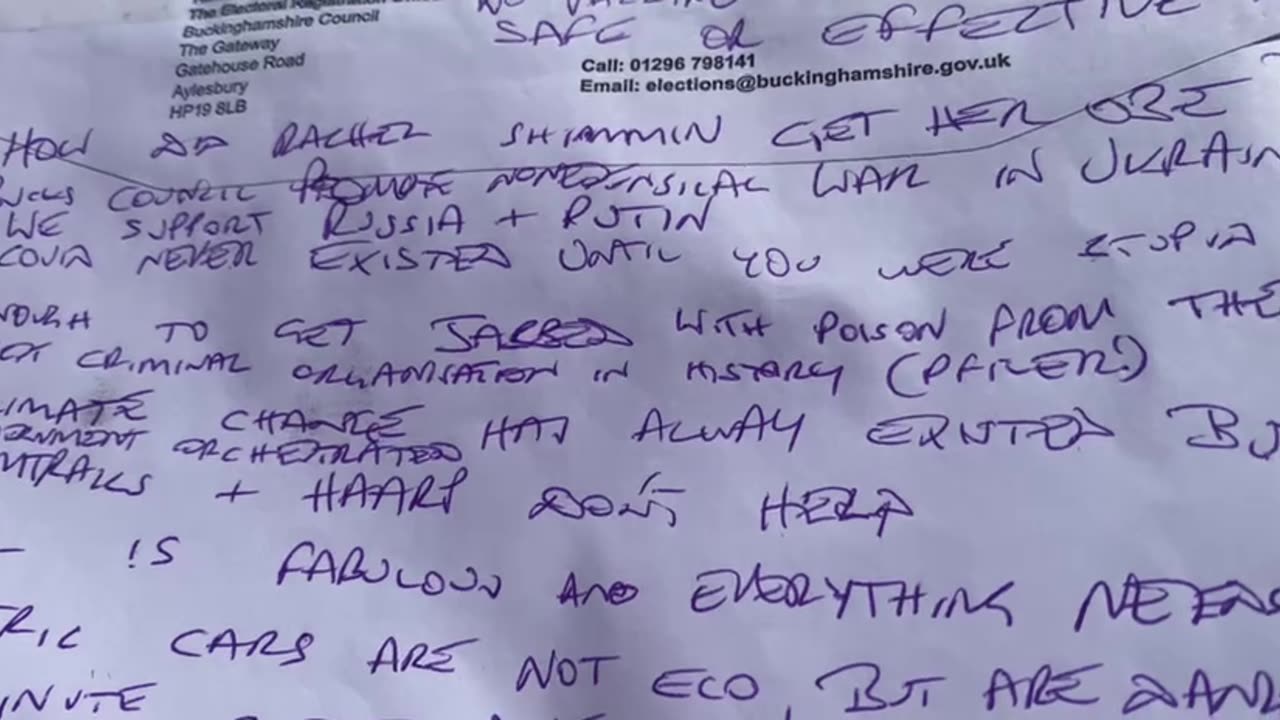 The Electoral Registration
Buckinghamshire Council
The Gateway
Gatehouse Road
Aylesbury
HP19 8LB
SAFE OR EFFECTIVE
Call: 01296 798141
Email: elections@buckinghamshire.gov.uk
HOW DID RACHEL SHIMMIN GET HER OBE
COUNCIL PROMOTE NONSENSICAL WAR IN UKRAIN
WE SUPPORT RUSSIA + PUTIN
COVID NEVER EXISTED UNTIL YOU WERE STUPID
TO GET JABBED WITH POISON FROM THE
CRIMINAL ORGANISATION IN HISTORY (PFIZER!)
IMATE CHANGE HAS ALWAY EXISTED BU
ERNMENT ORCHESTRATED
MTRAILS + HAARP DON'T HELP
IS FABULOUS AND EVERYTHING NEEDS
RIC CARS ARE NOT ECO, BUT ARE